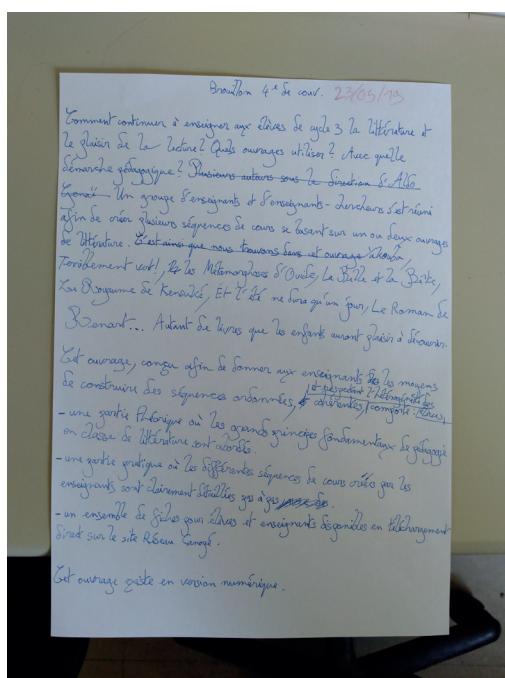 Brouillon 4e de couv. 23/05/19
Comment continuer à enseigner aux élèves de cycle 3 la littérature et
le plaisir de la lecture ? Quels ouvrages utiliser ? Avec quelle
démarche pédagogique ? Plusieurs auteurs sous la direction d'Aldo
Gennaï Un groupe d'enseignants et d'enseignants-chercheurs s'est réuni
afin de créer plusieurs séquences de cours se basant sur un ou deux ouvrages
de littérature. C'est ainsi que nous trouvons dans cet ouvrage Yakouba,
Terriblement vert !, Les Métamorphoses d'Ovide, La Belle et la Bête,
Le Royaume de Kensuké, Et l'été ne dura qu'un jour, Le Roman de
Renart... Autant de livres que les enfants auront plaisir à découvrir.
Cet ouvrage, conçu afin de donner aux enseignants les moyens
de construire des séquences ordonnées, cohérentes, et respectant l'hétérogénéité des élèves, comporte :
- une partie théorique où les grands principes fondamentaux de pédagogie
en classe de littérature sont abordés.
- une partie pratique où les différentes séquences de cours créées par les
enseignants sont clairement détaillées pas à pas.
- un ensemble de fiches pour élèves et enseignants disponibles en téléchargement
direct sur le site Réseau Canopé.
Cet ouvrage existe en version numérique.